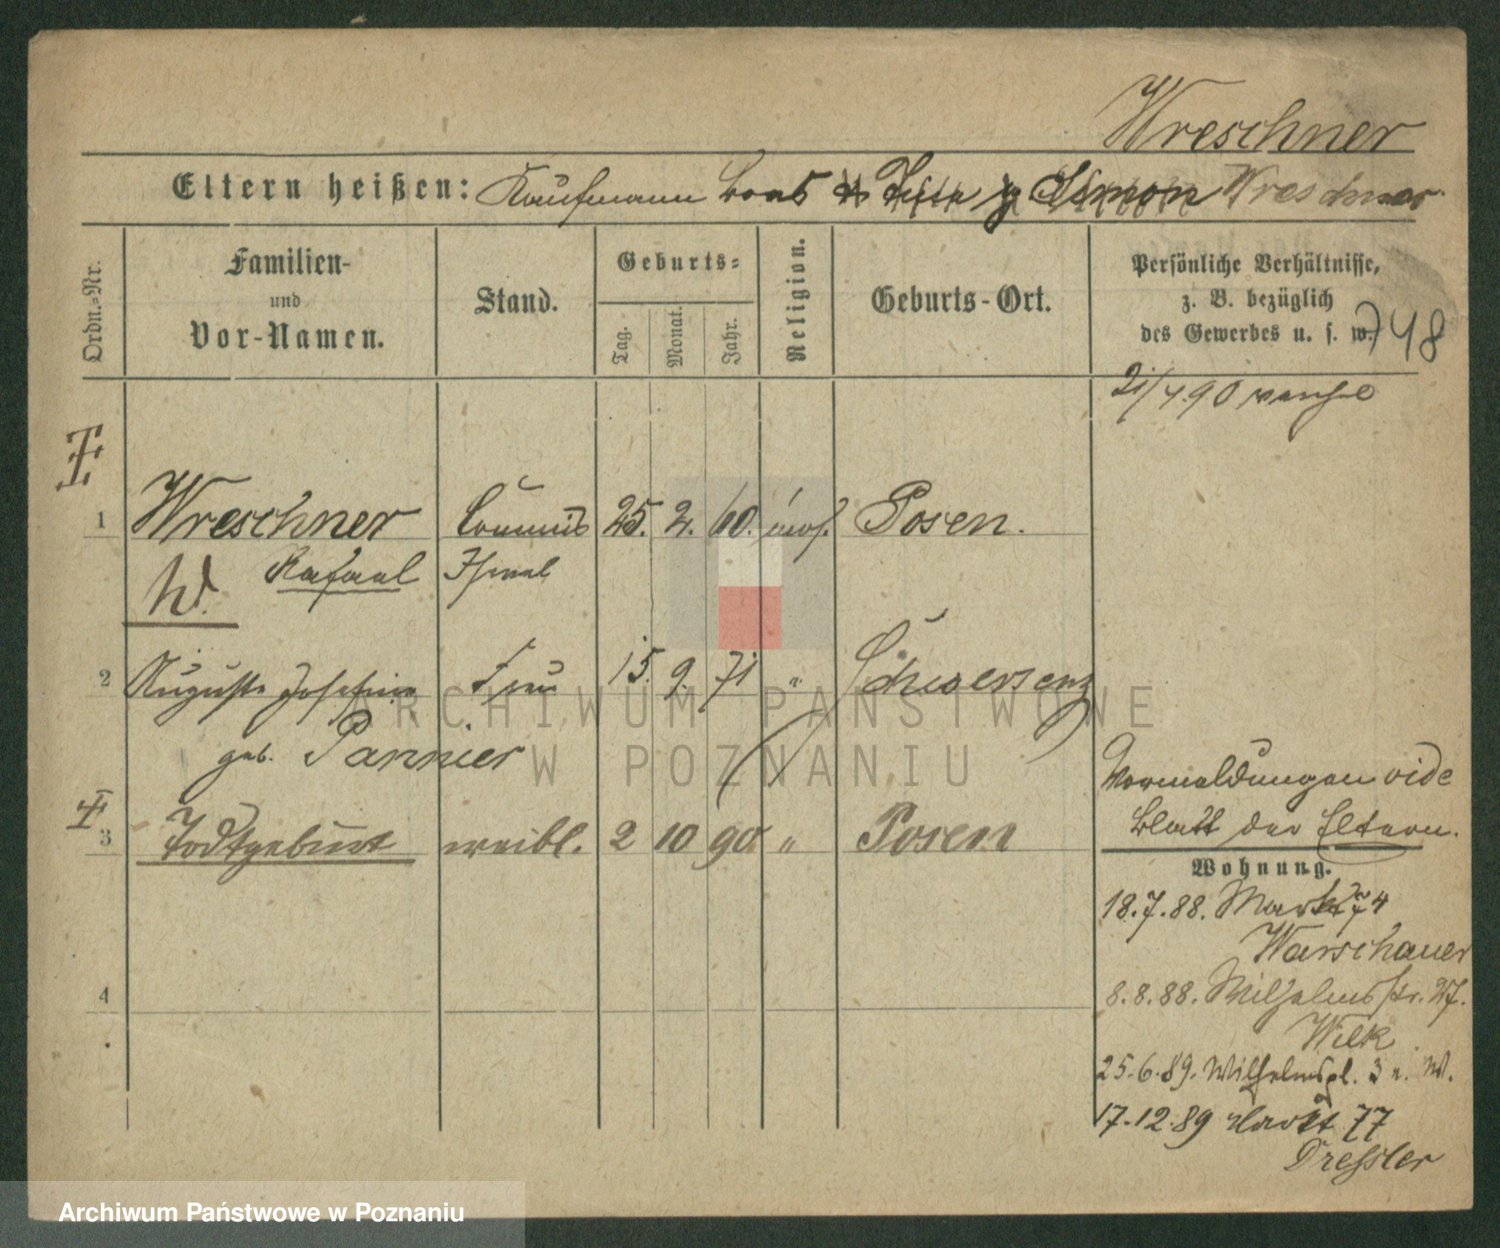 Wreschner
Eltern heißen: Kaufmann Simon Wreschner
Ordn.-Nr.
Familien-
und
Vor-Namen.
Stand.
Geburts-
Tag.
Monat.
Jahr.
Religion.
Geburts-Ort.
Persönliche Verhältnisse,
z. B. bezüglich
des Gewerbes u. s. w.
748
1 Wreschner Commis 25. 2. 60. mos. Posen.
Rafael
W.
2 Auguste Josefine Frau 15. 9. 71 " Schwersenz
geb. Pannier
3 Todtgeburt weibl. 2 10 90 " Posen
4
Vormeldungen vide
Blatt der Eltern.
Wohnung.
18.7.88. Markt 74
Warschauer
8.8.88. Wilhelmsstr. 27.
Wilk
25.6.89. Wilhelmspl. 3 W.
17.12.89 Markt 77
Dressler
ARCHIWUM PAŃSTWOWE
W POZNANIU
Archiwum Państwowe w Poznaniu